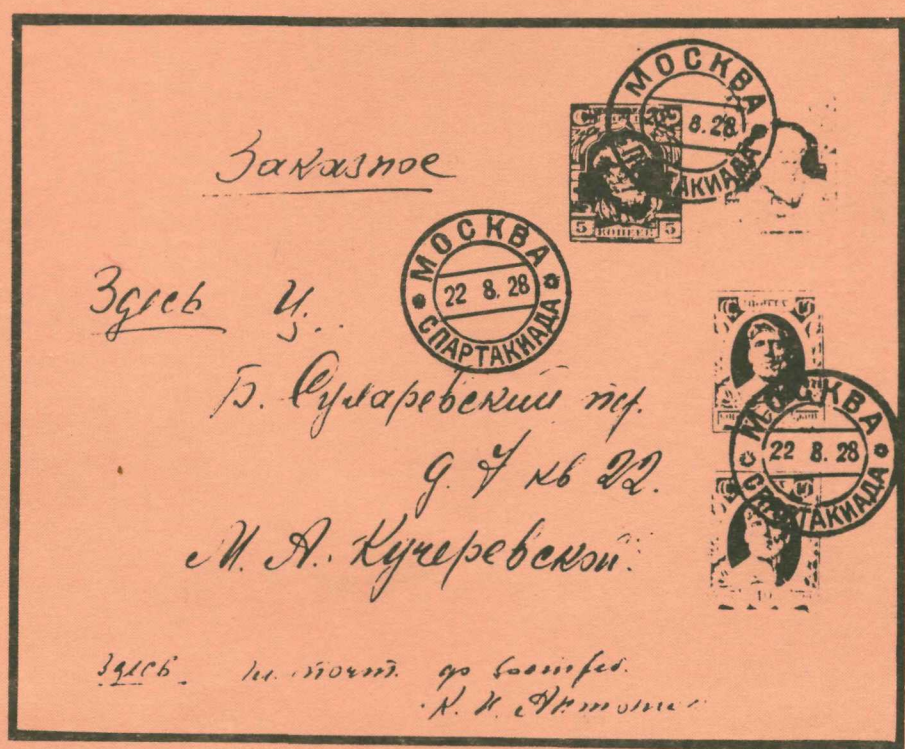 МОСКВА
8.28.
СПАРТАКИАДА
5 КОПЕЕК 5
Заказное
МОСКВА
22 8. 28
СПАРТАКИАДА
Здесь Ц.
Б. Сухаревский пер.
д. 7 кв 22.
М. А. Кучеревской.
МОСКВА
22 8. 28
СПАРТАКИАДА
10
Здесь почт. до востреб.
К. И.